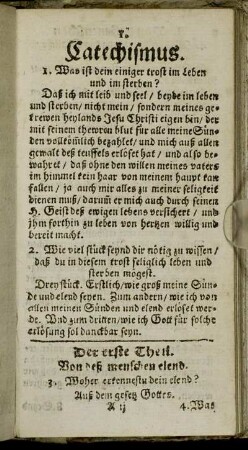 1.
Catechismus.
1. Was ist dein einiger trost im Leben
und im sterben?
Daß ich mit leib und seel / beyde im leben
und sterben / nicht mein / sondern meines ge-
trewen heylands Jesu Christi eigen bin / der
mit seinem thewren blut für alle meine Sün-
den vollkömlich bezahlet / und mich auß allen
gewalt deß teuffels erlöset hat / und also be-
wahret / daß ohne den willen meines vaters
im himmel kein haar von meinem haupt kan
fallen / ja auch mir alles zu meiner seligkeit
dienen muß / darumb er mich auch durch seinen
H. Geist deß ewigen lebens versichert / und
jhm forthin zu leben von hertzen willig und
bereit macht.
2. Wie viel stück seynd dir nötig zu wissen /
daß du in diesem trost seliglich leben und
sterben mögest.
Drey stück. Erstlich / wie groß meine Sün-
de und elend seyen. Zum andern / wie ich von
allen meinen Sünden und elend erlöset wer-
de. Und zum dritten / wie ich Gott für solche
erlösung sol danckbar seyn.
Der erste Theil.
Von deß menschen elend.
3. Woher erkennestu dein elend?
Auß dem gesetz Gottes.
A ij
4. Was